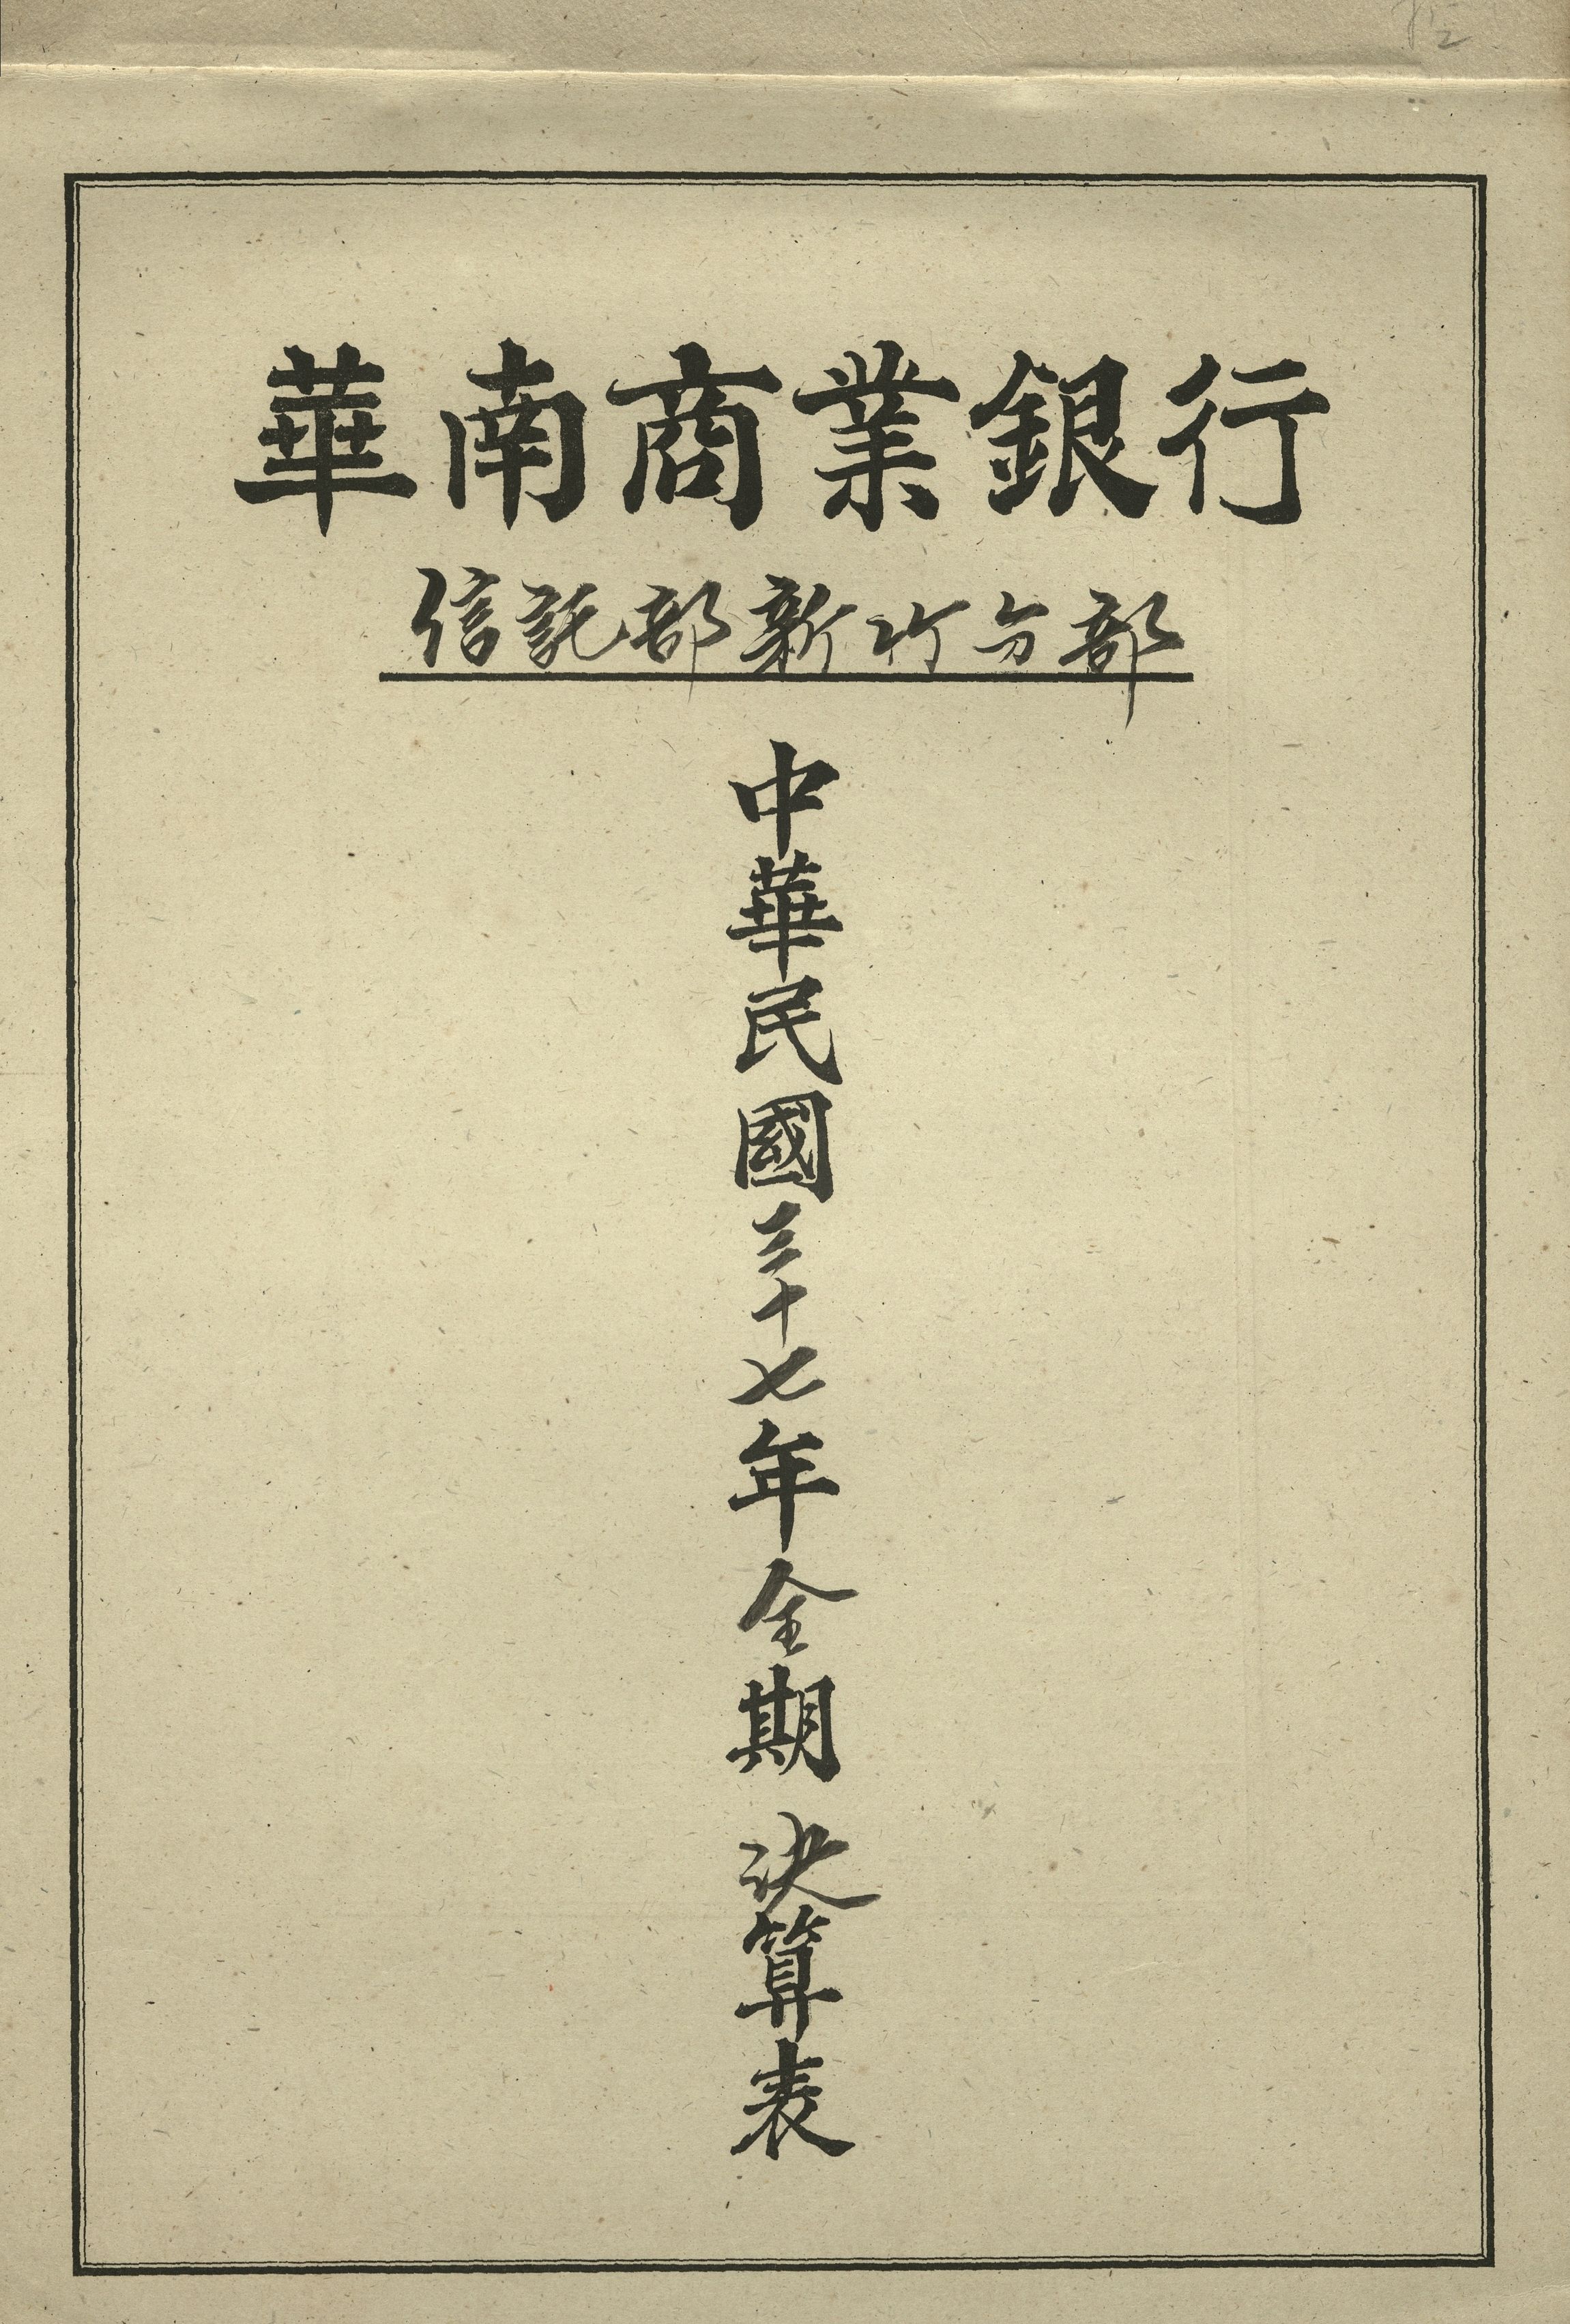 華南商業銀行
信託部新竹分部
中華民國三十七年全期決算表